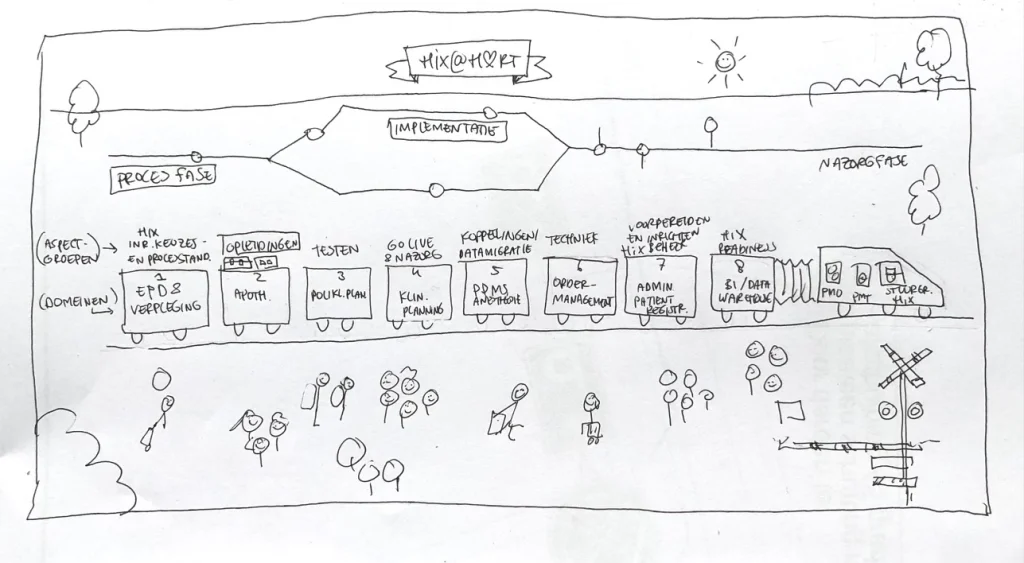 HiX@H♡RT
IMPLEMENTATIE
PROCESFASE
NAZORGFASE
(ASPECT-
GROEPEN)
HIX
INR.KEUZES-
EN PROCESSTAND.
OPLEIDINGEN
TESTEN
GO LIVE
& NAZORG
KOPPELINGEN/
DATAMIGRATIE
TECHNIEK
VOORBEREIDEN
EN INRICHTEN
HIX BEHEER
HIX
READINESS
(DOMEINEN)
1
EPD &
VERPLEGING
2
APOTH.
3
POLIKL.PLAN
4
KLIN.
PLANNING
5
PDMS
ANESTHESIE
6
ORDER-
MANAGEMENT
7
ADMIN.
PATIENT
REGISTR.
8
BI/DATA
WAREHOUSE
PMO
PMT
STUURGR.
HIX